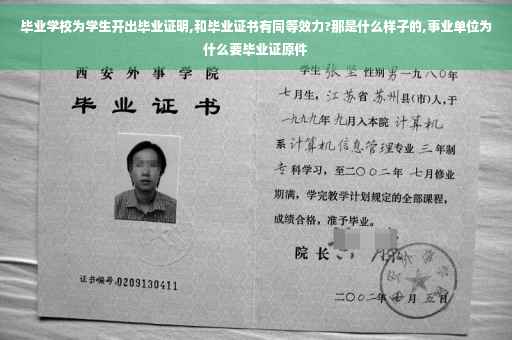 毕业学校为学生开出毕业证明,和毕业证书有同等效力?那是什么样子的,事业单位为
什么要毕业证原件
西安外事学院
毕业证书
证书编号:0209130411
学生张坚性别男一九八〇年
七月生,江苏省苏州县(市)人,于
一九九九年九月入本院计算机
系计算机信息管理专业三年制
专科学习,至二〇〇二年七月修业
期满,学完教学计划规定的全部课程,
成绩合格,准予毕业。
院长
二〇〇二年七月五日